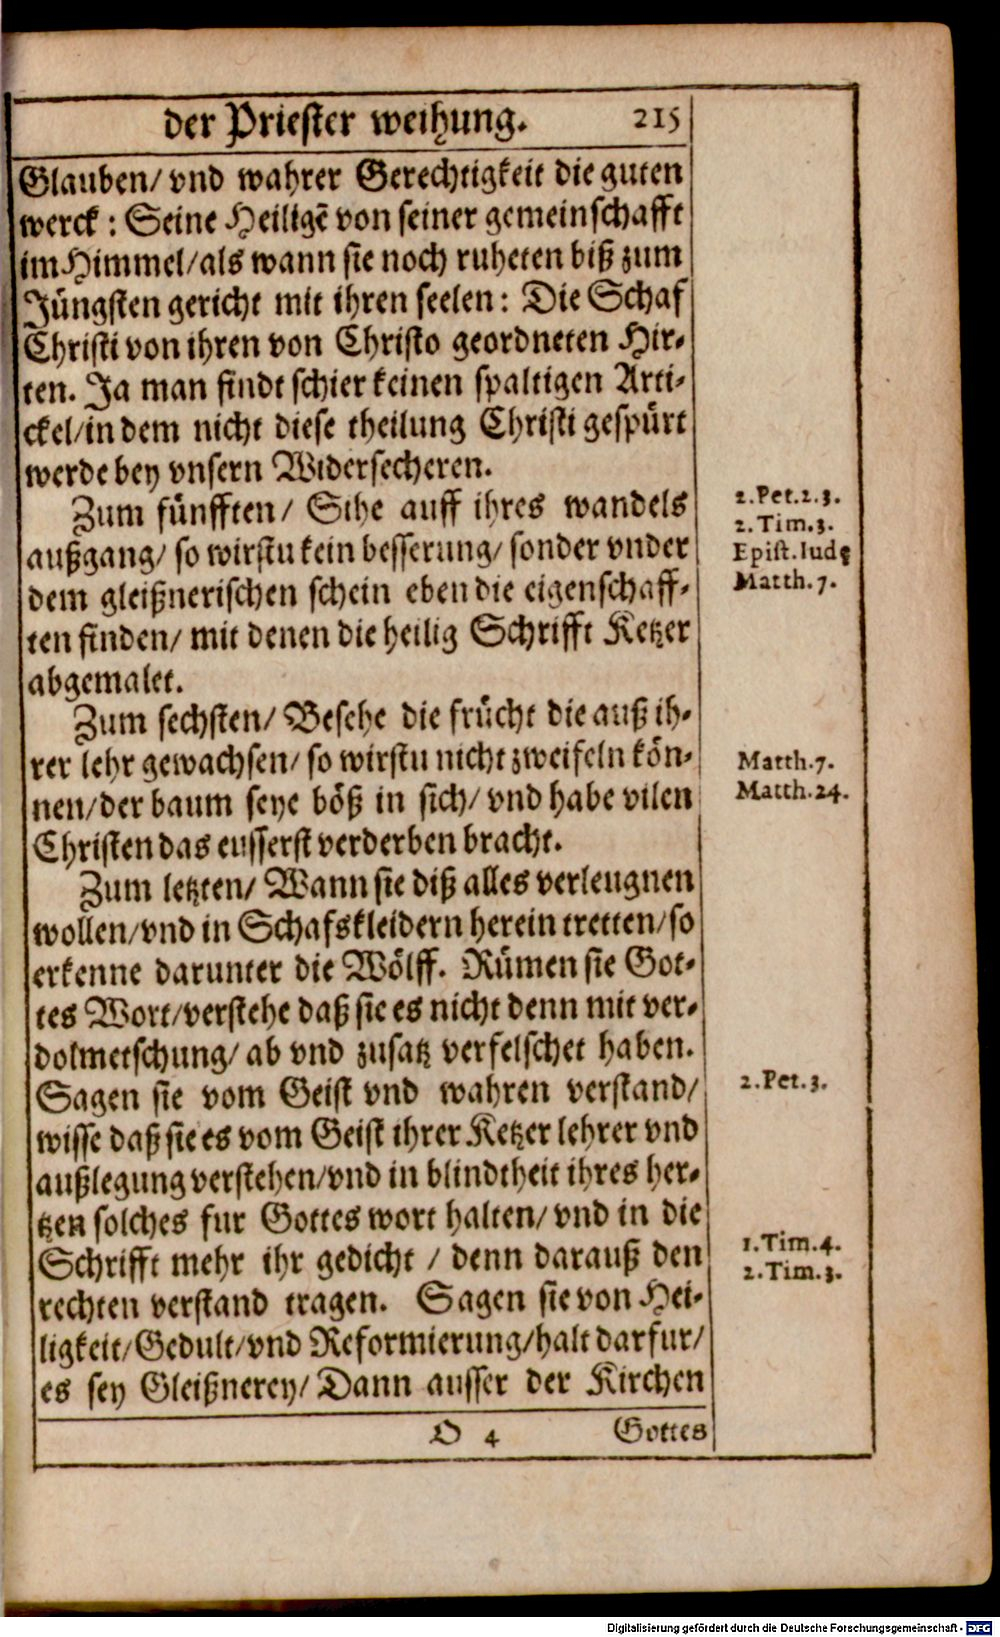 der Priester weihung. 215
Glauben/ vnd wahrer Gerechtigkeit die guten
werck : Seine Heiligē von seiner gemeinschafft
im Himmel/als wann sie noch ruheten biß zum
Jüngsten gericht mit ihren seelen: Die Schaf
Christi von ihren von Christo geordneten Hir-
ten. Ja man findt schier keinen spaltigen Arti-
ckel/in dem nicht diese theilung Christi gespürt
werde bey vnsern Widersecheren.
Zum fünfften/ Sihe auff ihres wandels
außgang/ so wirstu kein besserung/ sonder vnder
dem gleißnerischen schein eben die eigenschaff-
ten finden/ mit denen die heilig Schrifft Ketzer
abgemalet.
Zum sechsten/ Besehe die frücht die auß ih-
rer lehr gewachsen/ so wirstu nicht zweifeln kön-
nen/der baum seye böß in sich/ vnd habe vilen
Christen das eusserst verderben bracht.
Zum letzten/ Wann sie diß alles verleugnen
wollen/vnd in Schafskleidern herein tretten/so
erkenne darunter die Wölff. Rümen sie Got-
tes Wort/verstehe daß sie es nicht denn mit ver-
dolmetschung/ ab vnd zusatz verfelschet haben.
Sagen sie vom Geist vnd wahren verstand/
wisse daß sie es vom Geist ihrer Ketzer lehrer vnd
außlegung verstehen/vnd in blindtheit ihres her-
tzen solches fur Gottes wort halten/ vnd in die
Schrifft mehr ihr gedicht / denn darauß den
rechten verstand tragen. Sagen sie von Hei-
ligkeit/Gedult/vnd Reformierung/halt darfur/
es sey Gleißnerey/ Dann ausser der Kirchen
O 4 Gottes
2.Pet.2.3.
2.Tim.3.
Epist.Iudę
Matth.7.
Matth.7.
Matth.24.
2.Pet.3.
1.Tim.4.
2.Tim.3.
Digitalisierung gefördert durch die Deutsche Forschungsgemeinschaft - DFG